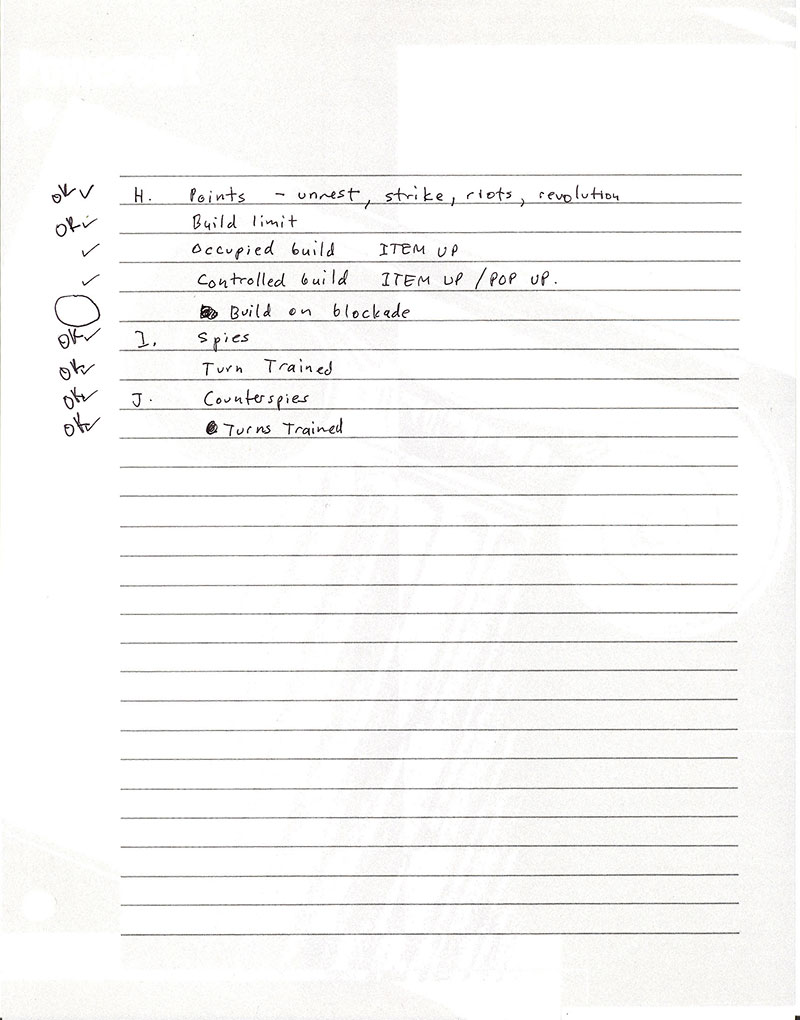 OK ✓ H. Points - unrest, strike, riots, revolution
OK ✓ Build limit
✓ Occupied build ITEM UP
✓ Controlled build ITEM UP / POP UP.
Build on blockade
OK ✓ I. Spies
OK ✓ Turn Trained
OK ✓ J. Counterspies
OK ✓ Turns Trained